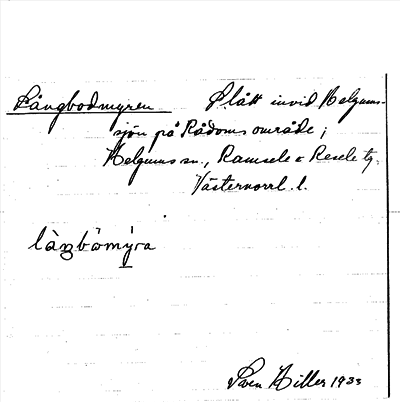 Långbodmyren Slått invid Helgums-
sjön på Rådoms område;
Helgums sn., Ramsele & Resele tg.
Västernorrl. l.
làŋbömýra
Sven Hiller 1933